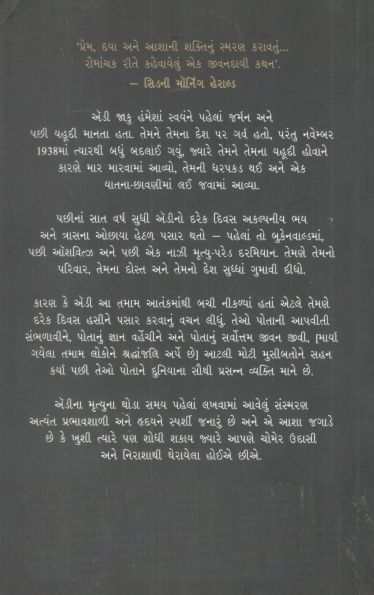 ‘પ્રેમ, દયા અને આશાની શક્તિનું સ્મરણ કરાવતું...
રોમાંચક રીતે કહેવાયેલું એક જીવનદાયી કથન’.
– સિડની મૉર્નિંગ હેરાલ્ડ
ઍડી જાકુ હંમેશાં સ્વયંને પહેલાં જર્મન અને
પછી યહૂદી માનતા હતા. તેમને તેમના દેશ પર ગર્વ હતો, પરંતુ નવેમ્બર
1938માં ત્યારથી બધું બદલાઈ ગયું, જ્યારે તેમને તેમના યહૂદી હોવાને
કારણે માર મારવામાં આવ્યો, તેમની ધરપકડ થઈ અને એક
યાતના-છાવણીમાં લઈ જવામાં આવ્યા.
પછીનાં સાત વર્ષ સુધી ઍડીનો દરેક દિવસ અકલ્પનીય ભય
અને ત્રાસના ઓછાયા હેઠળ પસાર થતો – પહેલાં તો બુકેનવાલ્ડમાં,
પછી ઑશવિત્ઝ અને પછી એક નાઝી મૃત્યુ-પરેડ દરમિયાન. તેમણે તેમનો
પરિવાર, તેમના દોસ્ત અને તેમનો દેશ સુધ્ધાં ગુમાવી દીધો.
કારણ કે ઍડી આ તમામ આતંકમાંથી બચી નીકળ્યાં હતાં એટલે તેમણે
દરેક દિવસ હસીને પસાર કરવાનું વચન લીધું. તેઓ પોતાની આપવીતી
સંભળાવીને, પોતાનું જ્ઞાન વહેંચીને અને પોતાનું સર્વોત્તમ જીવન જીવી, [માર્યા
ગયેલા તમામ લોકોને શ્રદ્ધાંજલિ અર્પે છે] આટલી મોટી મુસીબતોને સહન
કર્યા પછી તેઓ પોતાને દુનિયાના સૌથી પ્રસન્ન વ્યક્તિ માને છે.
ઍડીના મૃત્યુના થોડા સમય પહેલાં લખવામાં આવેલું સંસ્મરણ
અત્યંત પ્રભાવશાળી અને હૃદયને સ્પર્શી જનારું છે અને એ આશા જગાડે
છે કે ખુશી ત્યારે પણ શોધી શકાય જ્યારે આપણે ચોમેર ઉદાસી
અને નિરાશાથી ઘેરાયેલા હોઈએ છીએ.